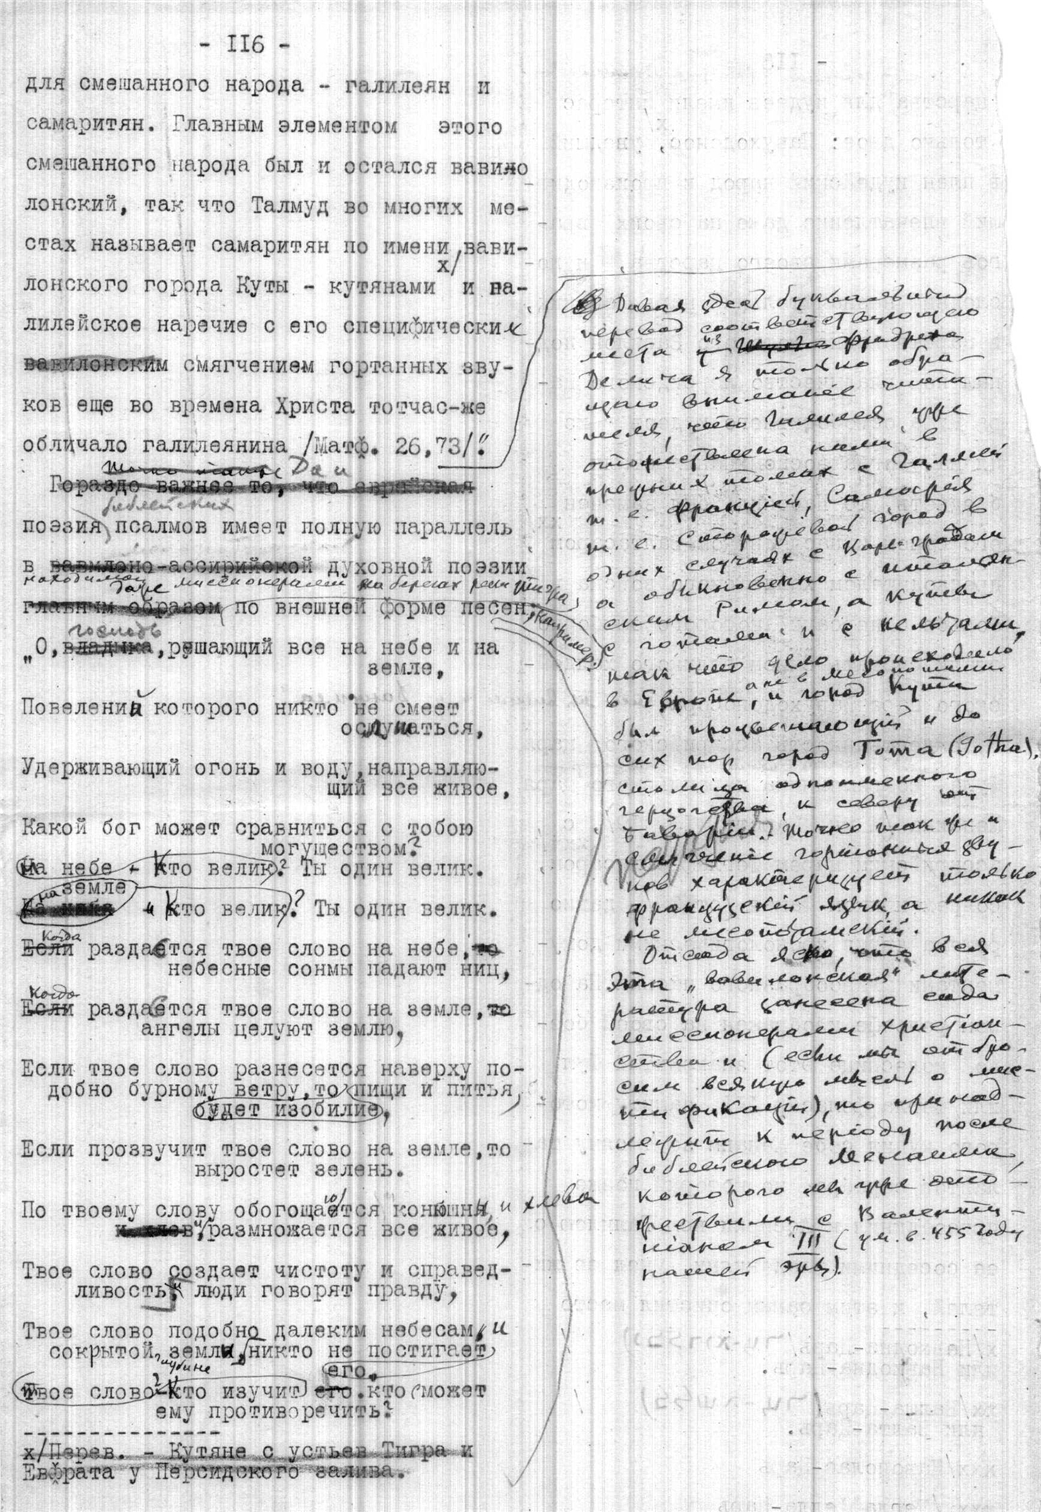 - II6 -
для смешанного народа - галилеян и
самаритян. Главным элементом этого
смешанного народа был и остался вавило
лонский, так что Талмуд во многих ме-
стах называет самаритян по имени вави-
х/
лонского города Куты - кутянами и га-
лилейское наречие с его специфических
вавилонским смягчением гортанных зву-
ков еще во времена Христа тотчас-же
обличало галилеянина /Матф. 26,73/."
Гораздо важнее то, что еврейская
библейских
поэзия псалмов имеет полную параллель
в вавилоно-ассирийской духовной поэзии
находимой миссионерами на берегах реки Тигра,
главным образом по внешней форме песен, например:
господь
"О, владыка, решающий все на небе и на
земле,
Повелений которого никто не смеет
ослушаться,
Удерживающий огонь и воду, направляю-
щий все живое,
Какой бог может сравниться с тобою
могуществом?
На небе - Кто велик? Ты один велик.
на земле
На земле - кто велик? Ты один велик.
Когда
Если раздается твое слово на небе, то
небесные сонмы падают ниц,
Когда
Если раздается твое слово на земле, то
ангелы целуют землю,
Если твое слово разнесется наверху по-
добно бурному ветру, то пищи и питья
будет изобилие,
Если прозвучит твое слово на земле, то
выростет зелень.
По твоему слову обогощается конюшня, и хлева
и хлев, размножается все живое,
Твое слово создает чистоту и справед-
ливость, и люди говорят правду,
Твое слово подобно далеким небесам, и
сокрытой глубине земли, никто не постигает
его.
Твое слово - Кто изучит его. кто может
ему противоречить?
х/Перев. - Кутяне с устьев Тигра и
Евфрата у Персидского залива.
Давая здесь буквальный
перевод соответствующего
места из Фридриха
Делича я только обра-
щаю внимание чита-
теля, что Галилея уже
отожествлена нами в
прежних томах с Галлией
т. е. Францией, Самария
т. е. Сторожевой город в
одних случаях с Царь-градом
а обыкновенно с италиян-
ским Римом, а кутеи
с готами и с кельтами,
так что дело происходило
в Европе, а не в Месопотамии и город Кути
был процветающий и до
сих пор город Гота (Gotha),
столица одноименного
герцогства, к северу от
Баварии. Точно так же и
смягчение гортанных зву-
ков характеризует только
французский язык, а никак
не месопотамский.
Отсюда ясно, что вся
эта „вавилонская" лите-
ратура занесена сюда
миссионерами христиан-
ства и (если мы отбро-
сим всякую мысль о мис-
тификации), то принад-
лежит к периоду после
библейского Менаима,
которого мы уже ото-
жествили с Валенти-
нианом III (ум. в 455 году
нашей эры).